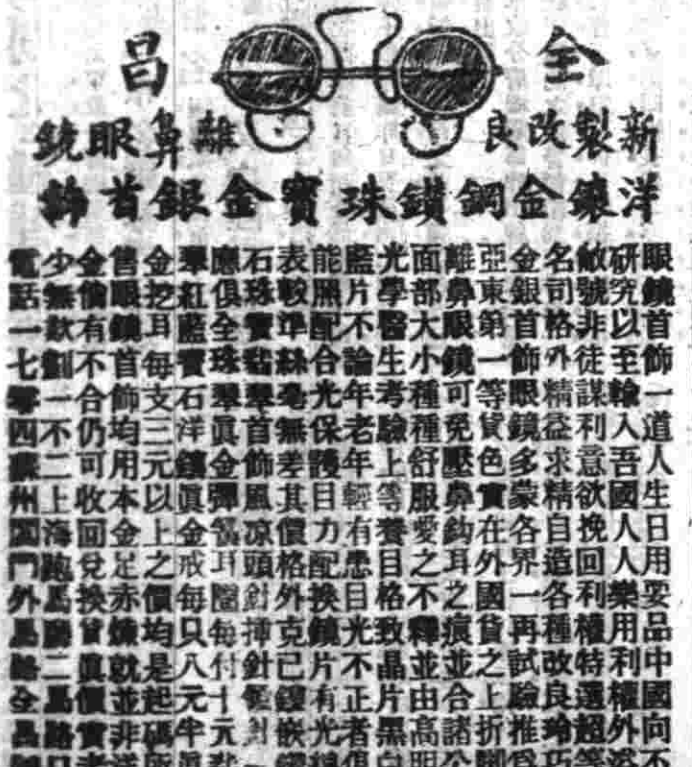 全昌
新製改良離鼻眼鏡
洋鑲金鋼鑽珠寶金銀首飾
眼鏡首飾一道人生日用要品中國向不
研究以至輸入吾國人人樂用利權外溢
敵號非徒謀利意欲挽回利權特選超等
名司格外精益求精自造各種改良玲巧
金銀首飾眼鏡多蒙各界一再試驗推爲
亞東第一等貨色實在外國貨之上折脚
離鼻眼鏡可免壓鼻鈎耳之痕並合諸公
面部大小種種舒服愛之不釋並由高明
光學醫生考驗上等養目格致晶片黑白
藍片不論年老年輕有患目光不正者俱
能照配合光保護目力配換鏡片有光
表較準絲毫無差其價格外克已鑲嵌
石珠寶黏翠首飾風凉頭針插針
應俱全珠翠眞金彈簧耳圈每付十元
翠紅藍寶石洋鑲眞金戒每只八元半眞
金挖耳每支三元以上之價均是起碼
售眼鏡首飾均用本金足赤煉就並非洋
金價有不合仍可收回兌換貨眞價實
少無欺劃一不二上海跑馬廳二馬路
電話一七零四蘇州閶門外昌路全昌